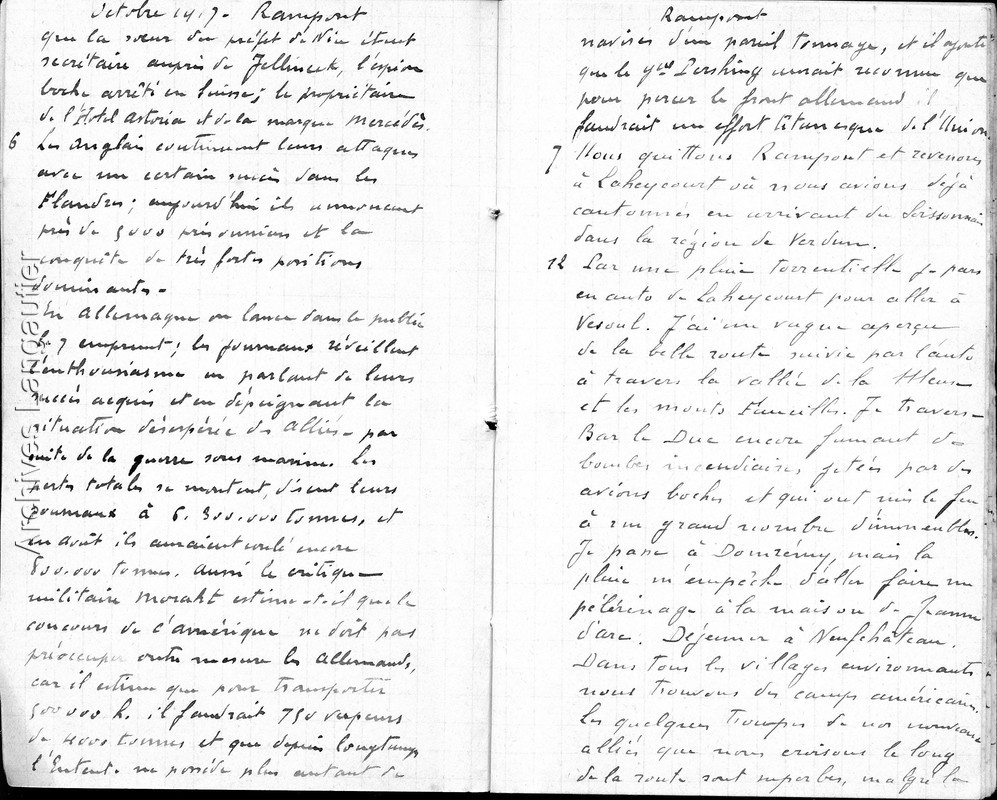 Octobre 1917. Rampont
que la sœur du préfet de Nice était
secrétaire auprès de Jellineck, l'espion
boche arrêté en Suisse; le propriétaire
de l'Hotel Astoria et de la marque Mercédès.
6 Les anglais continuent leurs attaques
avec un certain succès dans les
Flandres; aujourd'hui ils annoncent
près de 5000 prisonniers et la
conquête de très fortes positions
dominantes.
En Allemagne on lance dans le public
le 7 emprunt; les journaux réveillent
l'enthousiasme en parlant de leurs
succès acquis et en dépeignant la
situation désespérée des Alliés - par
suite de la guerre sous marine. Les
pertes totales se montent, disent leurs
journaux à 6.300.000 tonnes, et
en août ils auraient coulé encore
800.000 tonnes. Aussi le critique
militaire Moraht estime-t-il que le
concours de l'Amérique ne doit pas
préoccuper outre mesure les Allemands,
car il estime que pour transporter
500000 h. il faudrait 750 vapeurs
de 4000 tonnes et que depuis longtemps
l'Entente ne possède plus autant de
Rampont
navires d'un pareil tonnage, et il ajoute
que le gal Pershing aurait reconnu que
pour percer le front allemand il
faudrait un effort titanesque de l'Union.
7 Nous quittons Rampont et revenons
à Laheycourt où nous avions déjà
cantonnés en arrivant du Soissonnais
dans la région de Verdun.
12 Par une pluie torrentielle je pars
en auto de Laheycourt pour aller à
Vesoul. J'ai un vague aperçu
de la belle route suivie par l'auto
à travers la vallée de la Meuse
et les monts Faucilles. Je traverse
Bar le Duc encore fumant des
bombes incendiaires jetées par des
avions boches et qui ont mis le feu
à un grand nombre d'immeubles.
Je passe à Domrémy, mais la
pluie m'empêche d'aller faire un
pélérinage à la maison de Jeanne
d'arc. Déjeuner à Neufchâteau.
Dans tous les villages environnants
nous trouvons des camps américains.
Les quelques troupes de nos nouveaux
alliés que nous croisons le long
de la route sont superbes, malgré la
Archives Lancautier